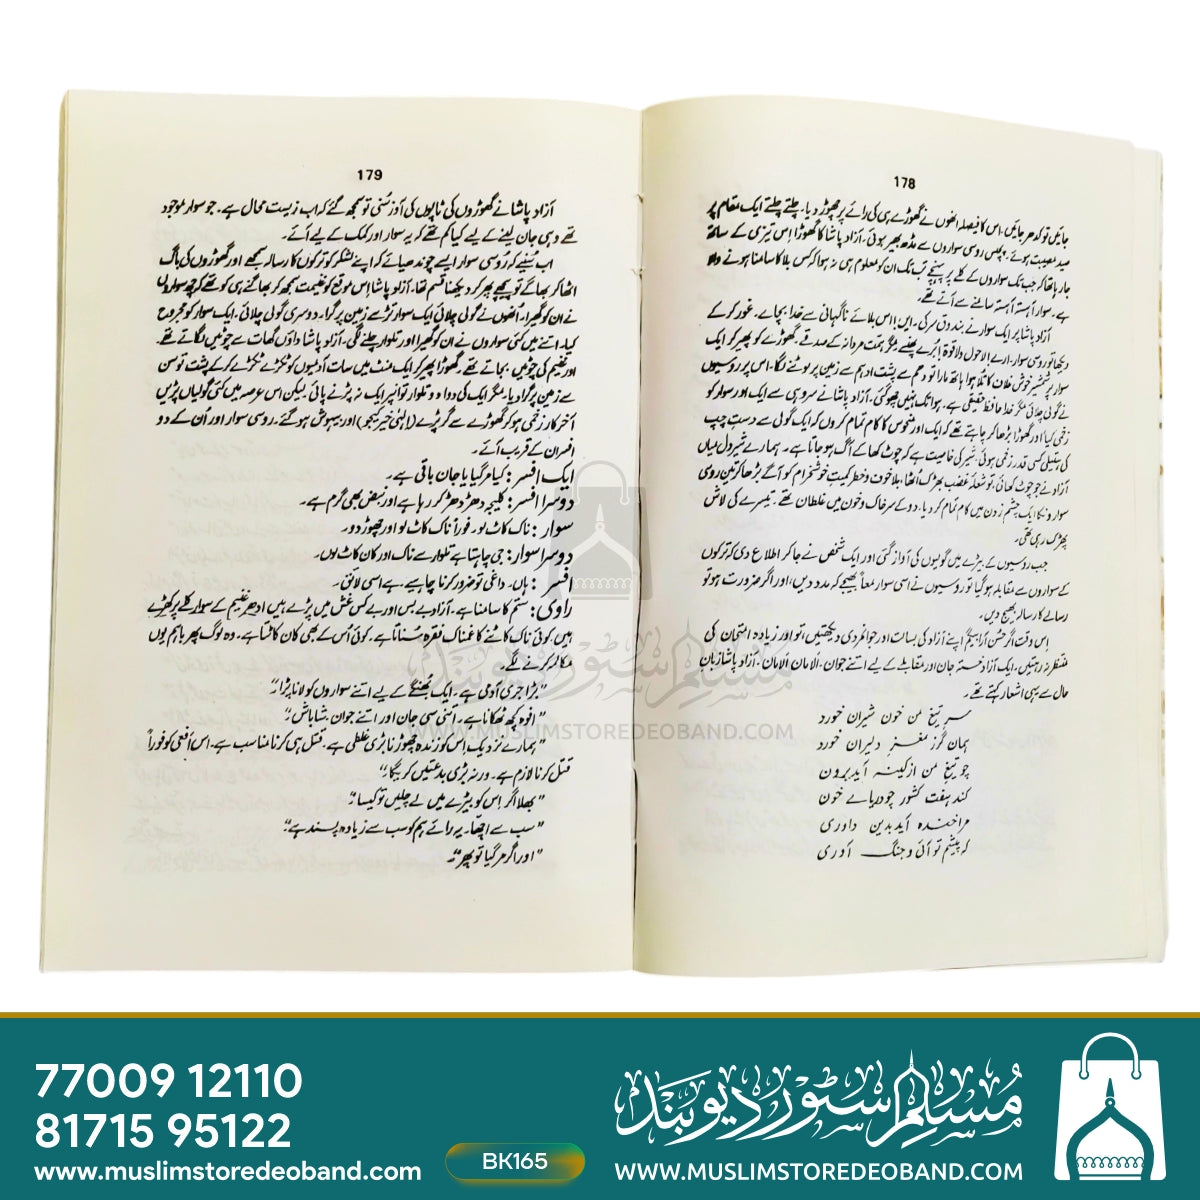 178
جائیں تو کدھر جائیں۔ اس کا فیصلہ انھوں نے گھوڑے ہی کی رائے پر چھوڑ دیا۔ چلتے چلتے ایک مقام پر
صید مصیبت ہوئے۔ چپلس روسی سواروں سے مڈھ بھیڑ ہوئی۔ آزاد پاشا کا گھوڑا اس تیزی کے ساتھ
جا رہا تھا کہ جب تک سواروں کے کلے پر پہنچے تب تک ان کو معلوم ہی نہ ہوا کہ کس بلا کا سامنا ہونے والا
ہے۔ سوار آہستہ آہستہ سامنے سے آتے تھے۔
آزاد پاشا پر ایک سوار نے بندوق سر کی۔ ایں! اس بلائے ناگہانی سے خدا بچائے۔ غور کر کے
دیکھا تو روسی سوار۔ ارے لاحول ولا قوۃ! بُرے پھنسے مگر ہمت مردانہ کے صدقے۔ گھوڑے کو پھیر کر ایک
سوار پر شمشیر خوش غلاف کا تُلا ہوا ہاتھ مارا تو دھم سے پشت ادہم سے زمین پر لوٹنے لگا۔ اس پر روسیوں
نے گولی چلائی مگر خدا حافظِ حقیقی ہے۔ ہوا تک نہیں چھو گئی۔ آزاد پاشا نے سروہی سے ایک اور سوار کو
زخمی کیا اور گھوڑا بڑھا کر چاہتے تھے کہ ایک اور منحوس کا کام تمام کروں کہ ایک گولی سے دست چپ
کی ہتھیلی کسی قدر زخمی ہوئی۔ شیر کی خاصیت ہے کہ چوٹ کھا کے آگ ہو جاتا ہے۔ ہمارے شیر دل میاں
آزاد نے جو چوٹ کھائی، تو شعلۂ غضب بھڑک اُٹھا، بلا خوف و خطر کمیت خوش خرام کو آگے بڑھا کر تین روسی
سواروں کا ایک چشم زدن میں کام تمام کر دیا۔ دو کے سر خاک و خون میں غلطان تھے۔ تیسرے کی لاش
پھڑک رہی تھی۔
جب روسیوں کے بیڑے میں گولیوں کی آواز گئی اور ایک شخص نے جا کر اطلاع دی کہ ترکوں
کے سواروں سے مقابلہ ہو گیا تو روسیوں نے اسی سوار معاً بھیجے کہ مدد دیں، اور اگر ضرورت ہو تو
رسالے کا رسالہ بھیج دیں۔
اس وقت اگر حسن آرا بیگم اپنے آزاد کی بسالت اور جوانمردی دیکھتیں، تو اور زیادہ امتحان کی
منتظر نہ رہتیں۔ ایک آزاد خستہ جان اور مقابلے کے لیے اتنے جوان۔ الامان الامان۔ آزاد پاشا زبان
حال سے یہی اشعار کہتے تھے۔
سرِ تیغ من خون شیران خورد
ہمان گرز مغز دلیران خورد
چو تیغ من از کینہ آید برون
کند ہفت کشور چو دریائے خون
مرا خندہ آید بدین داوری
کہ پیشم تو آئی و جنگ آوری
179
آزاد پاشا نے گھوڑوں کی ٹاپوں کی آواز سُنی تو سمجھ گئے کہ اب زیست محال ہے۔ جو سوار موجود
تھے وہی جان لینے کے لیے کیا کم تھے کہ یہ سوار اور کمک کے لیے آئے۔
اب سُنیے کہ روسی سوار ایسے چوندھیائے کہ اپنے لشکر کو ترکوں کا رسالہ سمجھے اور گھوڑوں کی باگ
اٹھا کر بھاگے تو پیچھے پھر کر دیکھنا قسم تھا۔ آزاد پاشا اس موقع کو غنیمت سمجھ کر بھاگنے ہی کو تھے کہ کچھ سواروں
نے ان کو گھیرا۔ انھوں نے گولی چلائی ایک سوار تڑ سے زمین پر گرا۔ دوسری گولی چلائی۔ ایک سوار کو مجروح
کیا۔ اتنے میں کئی سواروں نے ان کو گھیرا اور تلوار چلنے لگی۔ آزاد پاشا داؤں گھات سے چوٹیں لگاتے تھے
اور غنیم کی چوٹیں بچاتے تھے۔ گھوڑا پھیر کر ایک منٹ میں سات آدمیوں کو ٹکڑے ٹکڑے کر کے پشت توسن
سے زمین پر گرا دیا۔ مگر ایک کی دوا دو، تلوار تو انپر ایک نہ پڑنے پائی لیکن اس عرصہ میں کئی گولیاں پڑیں
آخر کار زخمی ہو کر گھوڑے سے گر پڑے (الٰہی خیر کیجو) اور بیہوش ہو گئے۔ روسی سوار اور اُن کے دو
افسران کے قریب آئے۔
ایک افسر: کیا مر گیا یا جان باقی ہے۔
دوسرا افسر: کلیجہ دھڑ دھڑ کر رہا ہے اور نبض بھی گرم ہے۔
سوار: ناک کاٹ لو۔ فوراً ناک کاٹ لو اور چھوڑ دو۔
دوسرا سوار: جی چاہتا ہے تلوار سے ناک اور کان کاٹ لوں۔
افسر: ہاں۔ داغی تو ضرور کرنا چاہیے۔ ہے اسی لائق۔
راوی: ستم کا سامنا ہے۔ آزاد بے بس اور بے کس غش میں پڑے ہیں ادھر غنیم کے سوار کلے پر کھڑے
ہیں۔ کوئی ناک کاٹنے کا غمناک فقرہ سُناتا ہے۔ کوئی اُس کے بھی کان کاٹتا ہے۔ وہ لوگ پھر باہم یوں
مکالمہ کرنے لگے۔
"بڑا جری آدمی ہے۔ ایک بُھنگے کے لیے اتنے سواروں کو لانا پڑا۔"
"افوہ کچھ ٹھکانا ہے۔ اتنی سی جان اور اتنے جوان، شاباش۔"
"ہمارے نزدیک اس کو زندہ چھوڑنا بڑی غلطی ہے۔ قتل ہی کرنا مناسب ہے۔ اس افعی کو فوراً
قتل کرنا لازم ہے۔ ورنہ بڑی بدعتیں کرے گا۔"
"بھلا اگر اس کو بیڑے میں لے چلیں تو کیسا۔"
"سب سے اچھا۔ یہ رائے ہم کو سب سے زیادہ پسند ہے۔"
"اور اگر مر گیا تو پھر۔"
مسلم سٹور دیوبند
WWW.MUSLIMSTOREDEOBAND.COM
77009 12110
81715 95122
www.muslimstoredeoband.com
BK165
مُسلم سٹور دیوبند
WWW.MUSLIMSTOREDEOBAND.COM